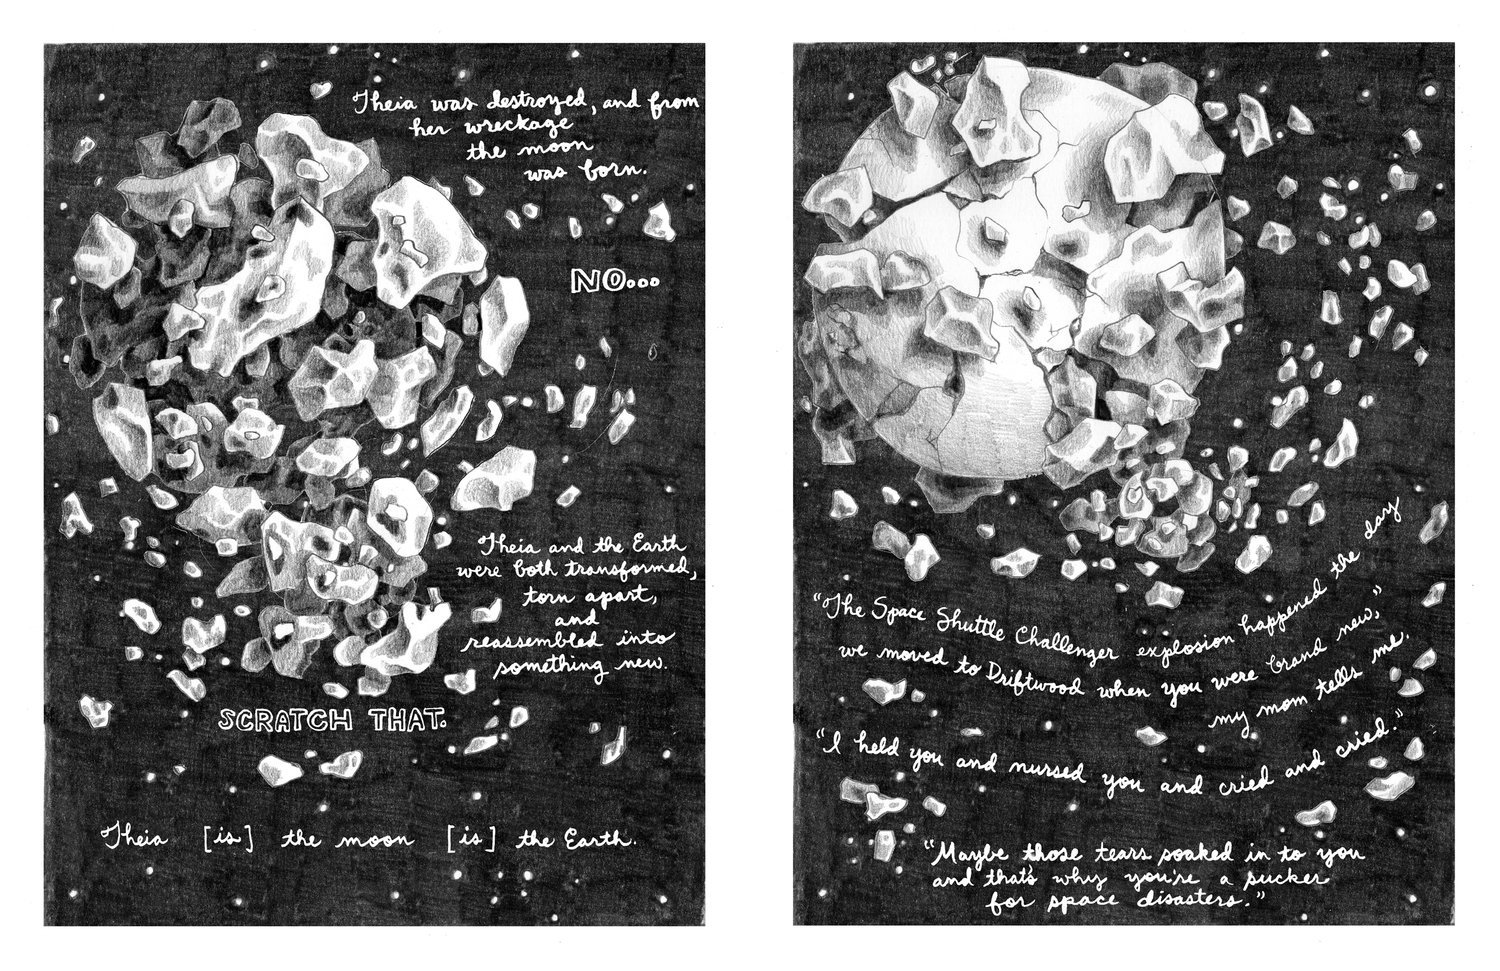 Theia was destroyed, and from
her wreckage
the moon
was born.
NO...
Theia and the Earth
were both transformed,
torn apart,
and
reassembled into
something new.
SCRATCH THAT.
Theia [is] the moon [is] the Earth.
"The Space Shuttle Challenger explosion happened the day
we moved to Driftwood when you were brand new,"
my mom tells me.
"I held you and nursed you and cried and cried."
"Maybe those tears soaked in to you
and that's why you're a sucker
for space disasters."